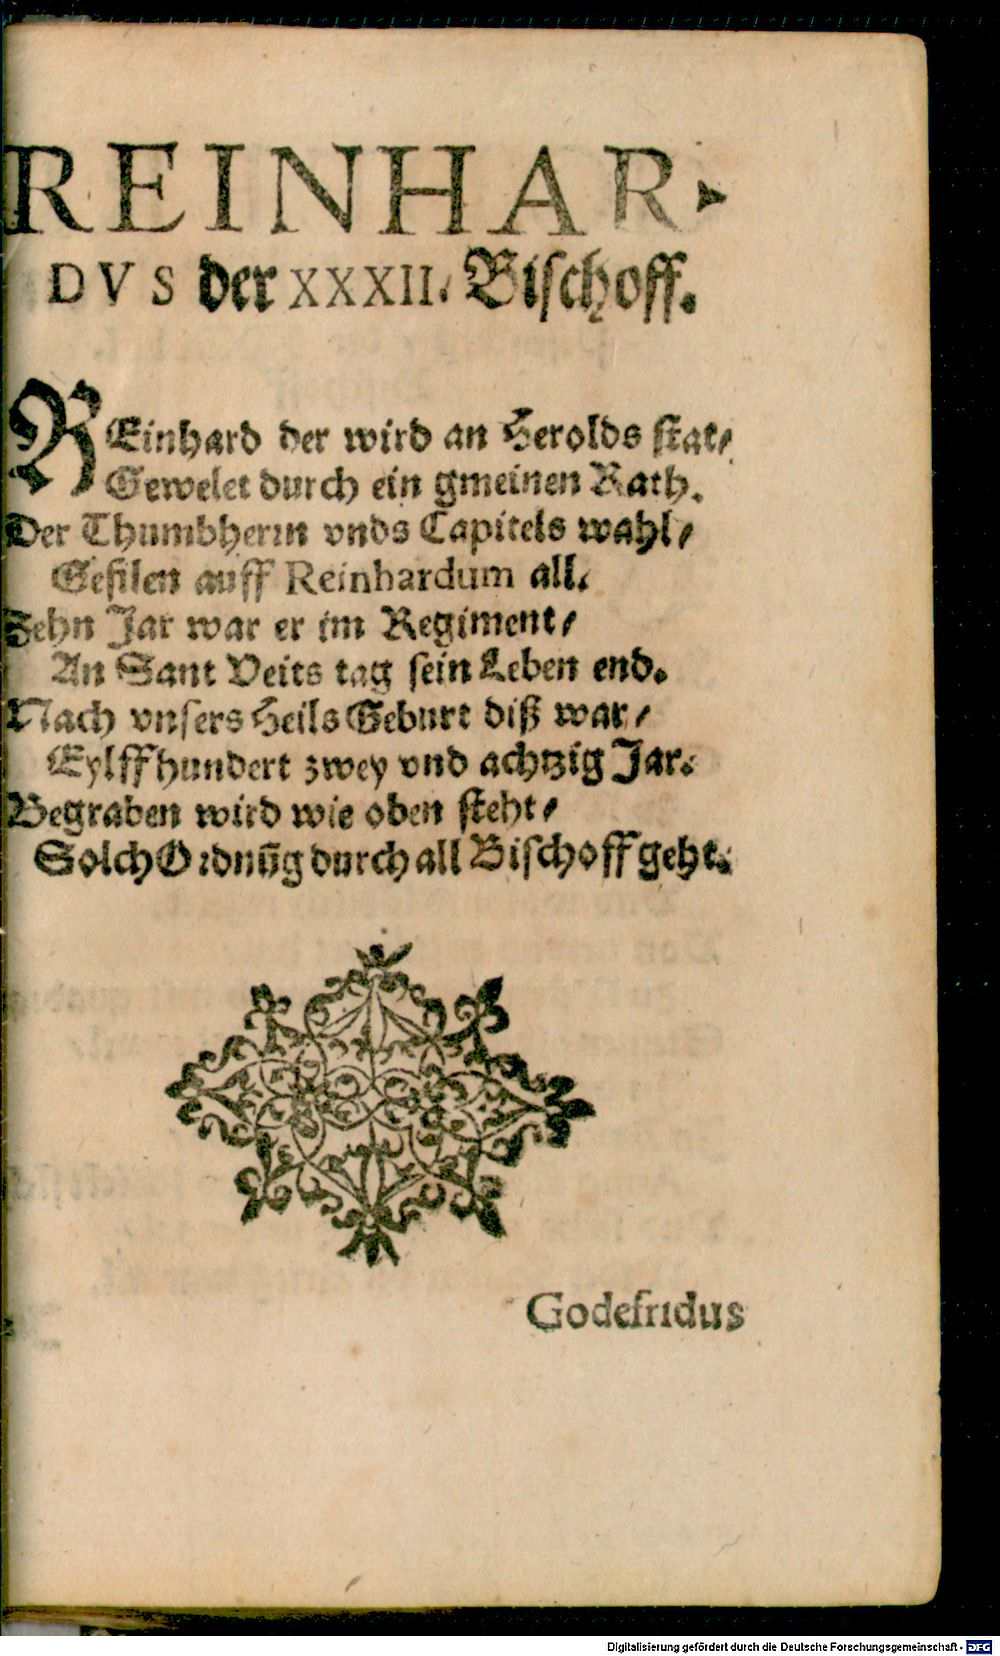 REINHAR-
DVS der XXXII. Bischoff.
REinhard der wird an Herolds stat/
Gewelet durch ein gmeinen Rath.
Der Thumbherrn vnds Capitels wahl/
Gefilen auff Reinhardum all.
Zehn Jar war er im Regiment/
An Sant Veits tag sein Leben end.
Nach vnsers Heils Geburt diß war/
Eylffhundert zwey vnd achtzig Jar.
Begraben wird wie oben steht/
Solch Ordnũg durch all Bischoff geht.
Godefridus
Digitalisierung gefördert durch die Deutsche Forschungsgemeinschaft - DFG